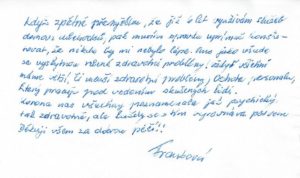 Když zpětně přemýšlím, že již 6 let využívám služeb
domova důchodců, pak musím opravdu upřímně konsta-
tovat, že nikde by mi nebylo lépe. Jako všude
se vyskytnou různé zdravotní problémy, když všichni
máme větší, či menší zdravotní problémy. Ochota personálu,
který pracuje pod vedením skutečných lidí.
Korona nás všechny poznamenala jak psychicky
tak zdravotně, ale každý se s tím vyrovnává po svém
Děkuji všem za dobrou péči!!